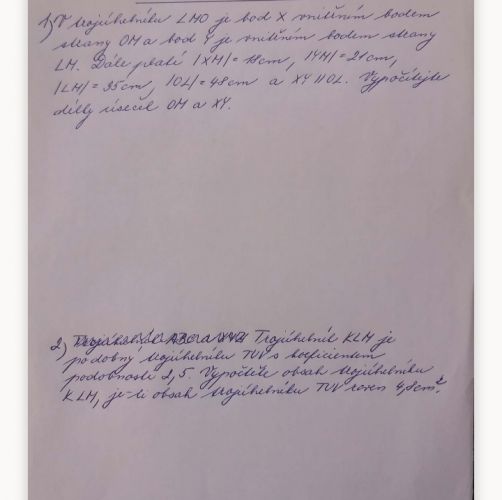 1) V trojúhelníku LMO je bod X vnitřním bodem
strany OM a bod Y je vnitřním bodem strany
LM. Dále platí |XM| = 18cm, |YM| = 21cm,
|LM| = 35cm, |OL| = 48cm a XY || OL. Vypočítejte
délky úseček OM a XY.
2) Trojúhelník KLM je
podobný trojúhelníku TUV s koeficientem
podobnosti 2,5. Vypočtěte obsah trojúhelníku
KLM, je-li obsah trojúhelníku TUV roven 4,8cm².